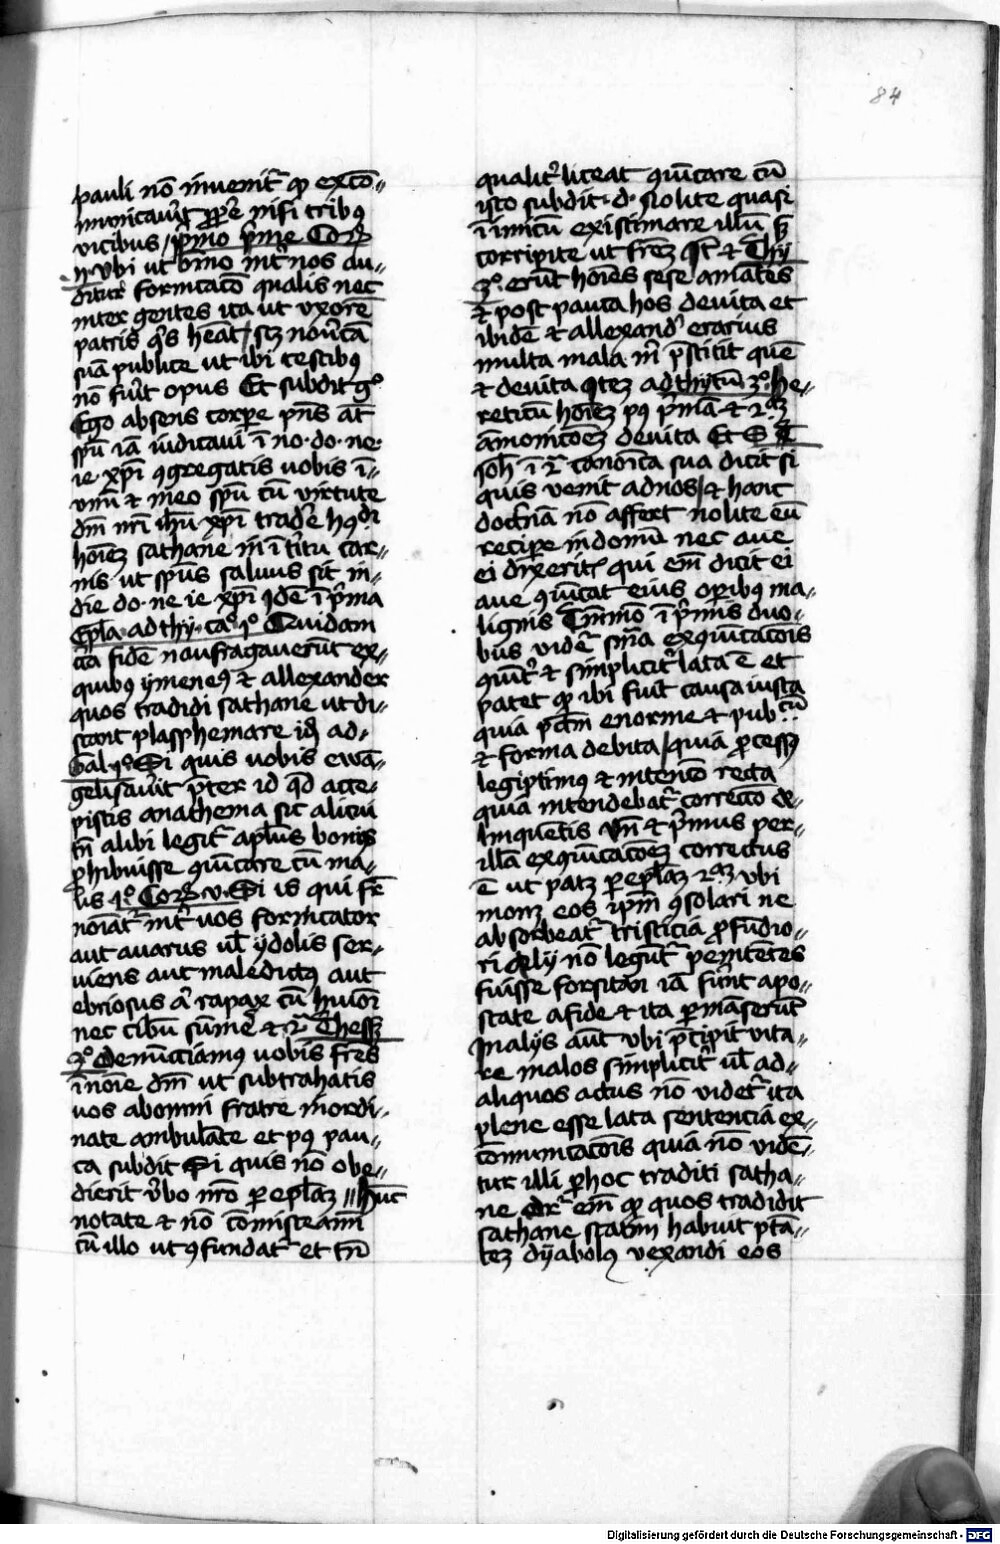 84
pauli nō invenitᷣ ꝙ excō„
municav̄it ꝓpͥe nisi tribꝰ
vicibus / pͥmo pͥme Corꝭ
v. vbi ut bͥmo intͥ nos au„
ditur fornicatō qualis nec
inter gentes ita ut vxorē
patris qͥs hēat / scꝫ nov̄cā
suā publice ut ibi testibꝰ
nō fūit opus Et subdit gͦ
Ego absens corꝑe pn̄s aūt
spū iā iudicavi ī no· do· ne·
ie xp̄i ꝯgregatis uobis ī„
vnū ⁊ meo spū cū virtute
dn̄i nr̄i ihū xp̄i tradͤe hꝰdi
hoīeꝫ sathane in ītͥitu car„
nis ut spūs saluus sit in„
die do· ne ie xp̄i ꝯdē ī pͥma
Epl̄a ad thy· caͦ 1ͦ Quidam
cͣa fidē naufragauerūt ex„
quibꝰ ymeneꝰ ⁊ allexander
quos tradidi sathane ut di„
scant plasphemare itꝫ ad„
Gal 1ͦ Si quis uobis ewā„
gelisaūit pͥter id qd̄ acce„
pistis anathema sit alicui
tn̄ alibi legitᷣ apl̄us bonis
ꝓhibuisse ꝯūicare cū ma„
lis 1ͦ Corꝭ v· Si is qui fr̄
noīatᷣ intͥ uos fornicator
aut auarus ul̄ ydolis ser„
uiens aut maledictꝰ aut
ebriosus aͬ rapax cū huiōi
nec cibū sūmē ⁊ 2ͣ Thessꝭ
3ͦ denūciamꝰ uobis frēs
ī noīe dn̄i ut subtrahatis
uos ab omni fratre inordi„
nate ambulāte et pꝰ pau„
ca subdit Si quis nō obe„
dierit v̄bo nr̄o ꝑ epl̄aꝫ // hūc
notate ⁊ nō cōmisceamī
cū illo ut ꝯfundatᷣ et tn̄
qualitͥ liceat ꝯūicare cū
isto subdit· d· Nolite quasi
īimicū existimare illū sꝫ
corripite ut frēꝫ Itꝫ ⁊ Thy
3ͦ erūt hoīes sese amātes
⁊ post pauca hos deuita et
ibidē ⁊ allexandͤ erarius
multa mala mͥ pͥstitit quē
⁊ deuita Itēꝫ ad thytū 3ͦ he„
reticū hoīeꝫ pꝰ pͥmā ⁊ 2ͣꝫ
āmonicōeꝫ deuita Et S
Joh̄ ī 2ͣ canoīca sua dicit si
quis venit ad nos / ⁊ hanc
doctͥnā nō affert nolite eū
reciꝑe in domū nec aue
ei dixeritᷣ qui em̄ dicit ei
aue ꝯūicat eius oꝑibꝰ ma„
lignis Tn̄ īmo ī pͥmis duo„
bus videtͬ sn̄īa excōīcacōis
ꝯūitᷣ ⁊ simplicitͥ lata ē et
patet ꝙ ibi fuit causa iusta
quia pctm̄ enorme ⁊ pubcū
⁊ forma debita / quia ꝓcessꝰ
legiptimꝰ ⁊ intencō recta
quia intendebatᷣ correccō de„
linquētis vn̄ ⁊ pͥmus per„
illā excōīcacōeꝫ correctus
ē ut patꝫ ꝑ epl̄aꝫ 2ͣꝫ vbi
monꝫ eos ip̄m ꝯsolari ne
absorbeatᷣ tristicia ꝓfūdio„
ri alij nō legūtᷣ penitētes
fuisse forsitan iā fuīt apo„
state a fide ⁊ ita ꝑmāserūt
In alijs aūt vbi pͥcipit vita„
re malos simplicitͥ ul̄ ad„
aliquos actus nō videtᷣ ita
plene esse lata sentencia ex„
cōmunicacōis quia nō vidē„
tur illi ꝑ hoc traditi satha„
ne drͬ em̄ ꝙ quos tradidit
sathane statim habuit ptā„
teꝫ dyabolꝰ vexandi eos
Digitalisierung gefördert durch die Deutsche Forschungsgemeinschaft - DFG